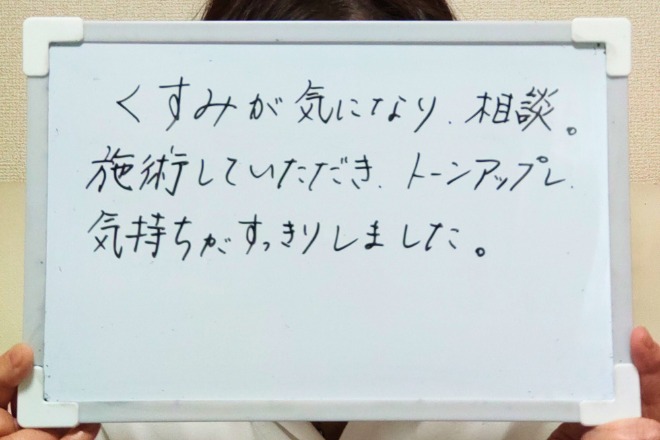 くすみが気になり、相談。
施術していただき、トーンアップし、
気持ちがすっきりしました。